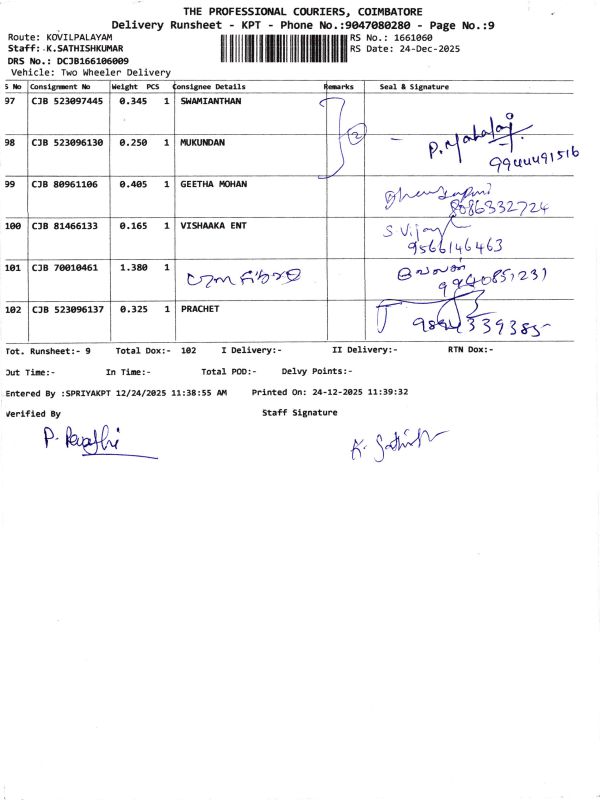 THE PROFESSIONAL COURIERS, COIMBATORE
Delivery Runsheet - KPT - Phone No.:9047080280 - Page No.:9
Route: KOVILPALAYAM RS No.: 1661060
Staff: K.SATHISHKUMAR RS Date: 24-Dec-2025
DRS No.: DCJB166106009
Vehicle: Two Wheeler Delivery
S No Consignment No Weight PCS Consignee Details Remarks Seal & Signature
97 CJB 523097445 0.345 1 SWAMIANTHAN
2
98 CJB 523096130 0.250 1 MUKUNDAN P. Mahalaj
9944491516
99 CJB 80961106 0.405 1 GEETHA MOHAN
8086332724
100 CJB 81466133 0.165 1 VISHAAKA ENT S Vijay
9566146463
101 CJB 70010461 1.380 1
9940851231
102 CJB 523096137 0.325 1 PRACHET
9894339385
Tot. Runsheet:- 9 Total Dox:- 102 I Delivery:- II Delivery:- RTN Dox:-
Out Time:- In Time:- Total POD:- Delvy Points:-
Entered By :SPRIYAKPT 12/24/2025 11:38:55 AM Printed On: 24-12-2025 11:39:32
Verified By Staff Signature
P. Revathi K. Sathish